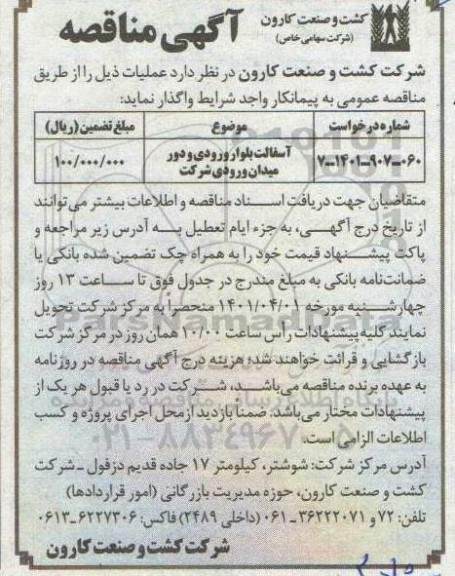 کشت و صنعت کارون
(شرکت سهامی خاص)
آگهی مناقصه
شرکت کشت و صنعت کارون در نظر دارد عملیات ذیل را از طریق
مناقصه عمومی به پیمانکار واجد شرایط واگذار نماید:
شماره درخواست موضوع مبلغ تضمین (ریال)
۷-۱۴۰۱-۹۰۷-۰۶۰ آسفالت بلوار ورودی و دور ۱۰۰/۰۰۰/۰۰۰
میدان ورودی شرکت
متقاضیان جهت دریافت اسناد مناقصه و اطلاعات بیشتر می‌توانند
از تاریخ درج آگهی، به جزء ایام تعطیل به آدرس زیر مراجعه و
پاکت پیشنهاد قیمت خود را به همراه چک تضمین شده بانکی یا
ضمانت‌نامه بانکی به مبلغ مندرج در جدول فوق تا ساعت ۱۳ روز
چهارشنبه مورخه ۱۴۰۱/۰۴/۰۱ منحصراً به مرکز شرکت تحویل
نمایند کلیه پیشنهادات راس ساعت ۱۰/۰۰ همان روز در مرکز شرکت
بازگشایی و قرائت خواهند شد؛ هزینه درج آگهی مناقصه در روزنامه
به عهده برنده مناقصه می‌باشد، شرکت در رد یا قبول هر یک از
پیشنهادات مختار می‌باشد. ضمنا بازدید از محل اجرای پروژه و کسب
اطلاعات الزامی است.
آدرس مرکز شرکت: شوشتر، کیلومتر ۱۷ جاده قدیم دزفول ـ شرکت
کشت و صنعت کارون، حوزه مدیریت بازرگانی (امور قراردادها)
تلفن: ۷۲ و ۳۶۲۲۲۰۷۱ ـ ۰۶۱ (داخلی ۲۴۸۹) فاکس: ۶۲۲۷۳۰۶-۰۶۱۳
شرکت کشت و صنعت کارون
ParsNamadData
پایگاه اطلاع رسانی مناقصه و مزایده
۰۲۱-۸۸۳۴۹۶۷۰